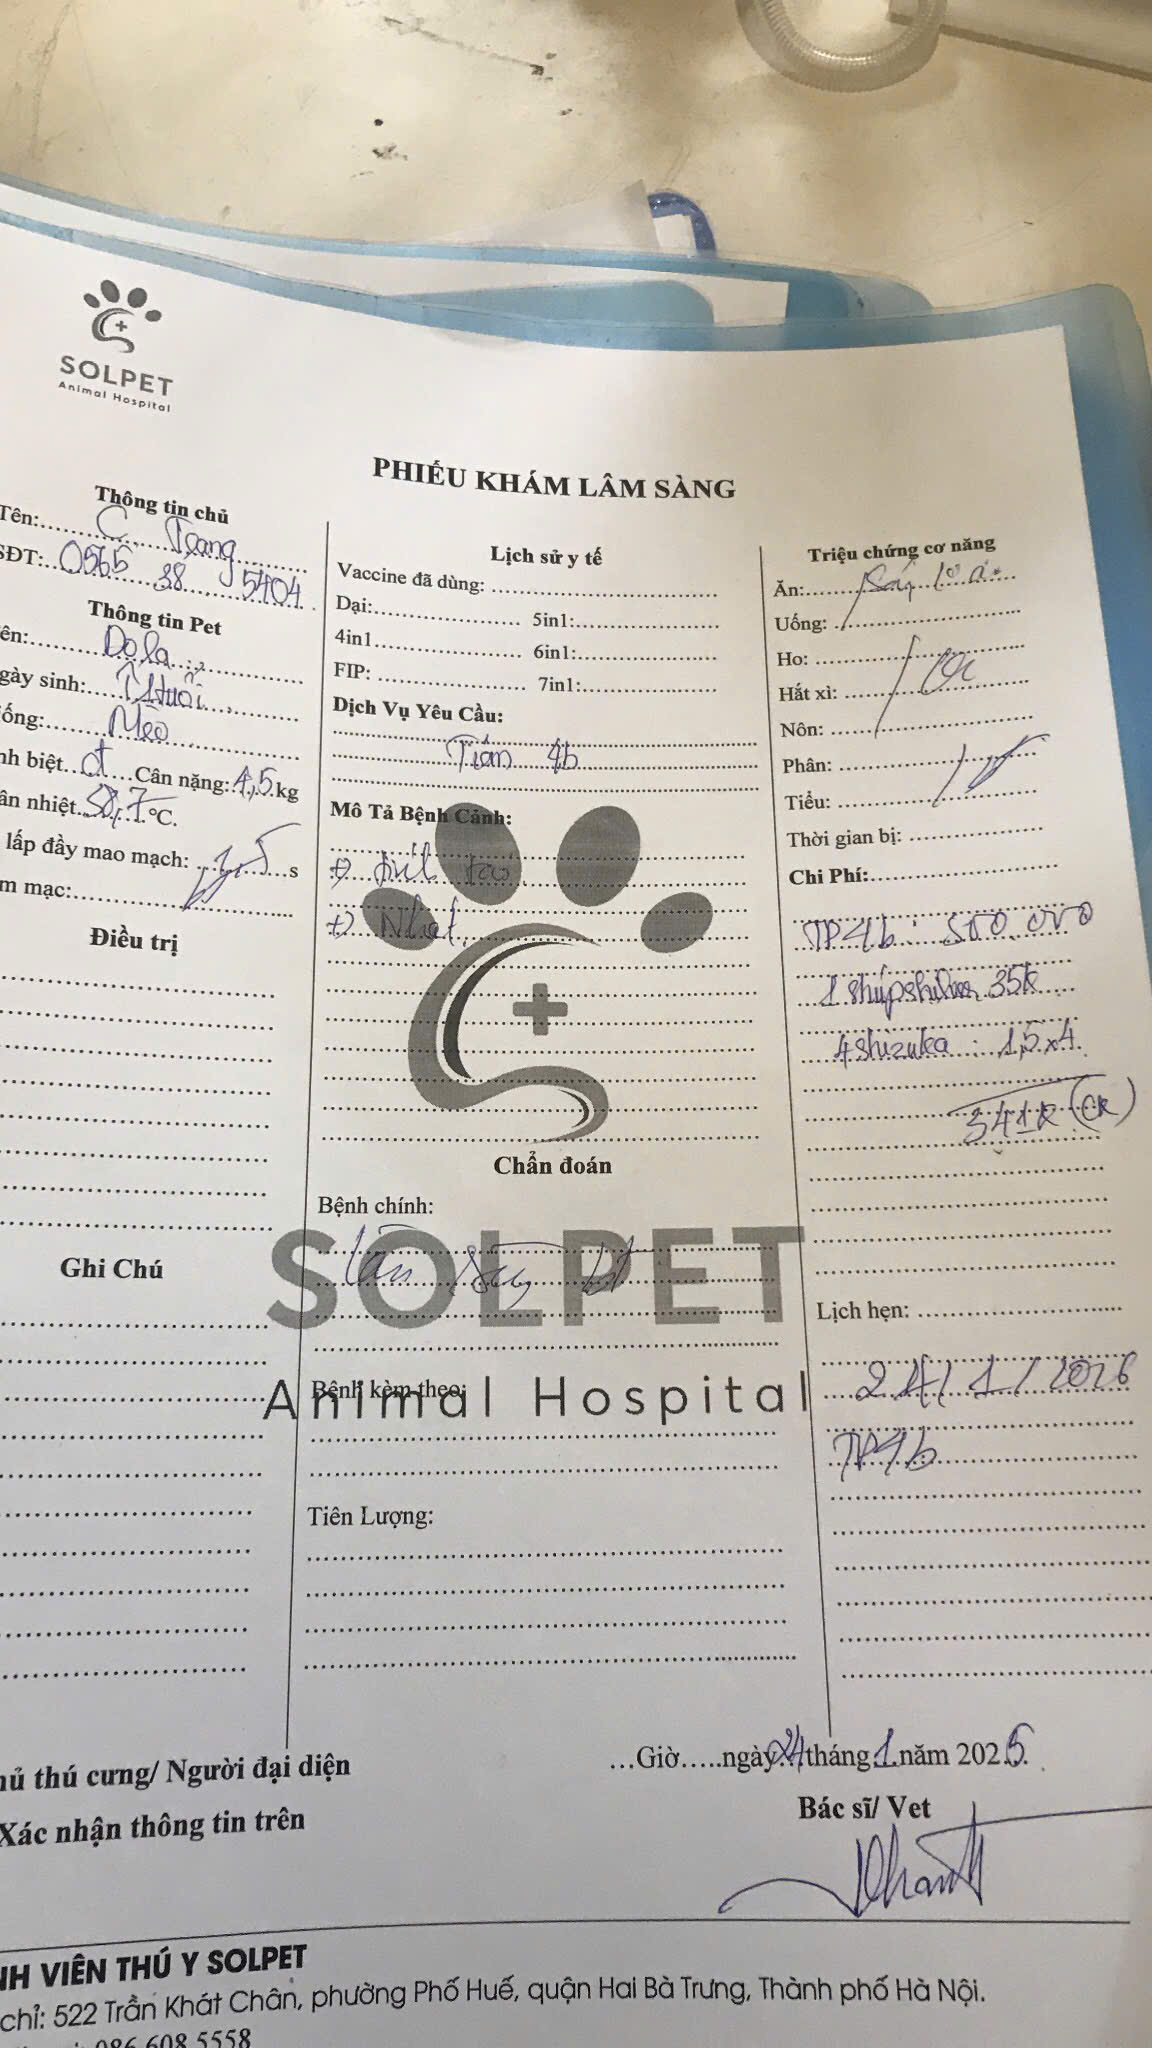 SOLPET
Animal Hospital
PHIẾU KHÁM LÂM SÀNG
Thông tin chủ
Tên: C. Trang
SĐT: 0565 38 5404
Thông tin Pet
ên: Dola
gày sinh: 1 tuổi
iống: Mèo
nh biệt đ Cân nặng: 4,5 kg
ân nhiệt 38,7 °C.
lấp đầy mao mạch: s
m mạc:
Điều trị
Ghi Chú
Lịch sử y tế
Vaccine đã dùng:
Dại: 5in1:
4in1 6in1:
FIP: 7in1:
Dịch Vụ Yêu Cầu:
Tiêm 4b
Mô Tả Bệnh Cảnh:
Nhạt
Chẩn đoán
Bệnh chính:
SOLPET
Bệnh kèm theo:
Animal Hospital
Tiên Lượng:
Triệu chứng cơ năng
Ăn:
Uống:
Ho:
Hắt xì:
Nôn:
Phân:
Tiểu:
Thời gian bị:
Chi Phí:
TP4b: 500.000
35k
4 shizuka: 1,5x4
341k (CK)
Lịch hẹn:
24/1/2026
TP4b
...Giờ.....ngày 24 tháng 1 năm 2025
hủ thú cưng/ Người đại diện
Xác nhận thông tin trên
Bác sĩ/ Vet
NH VIÊN THÚ Y SOLPET
chỉ: 522 Trần Khát Chân, phường Phố Huế, quận Hai Bà Trưng, Thành phố Hà Nội.
086 608 5558